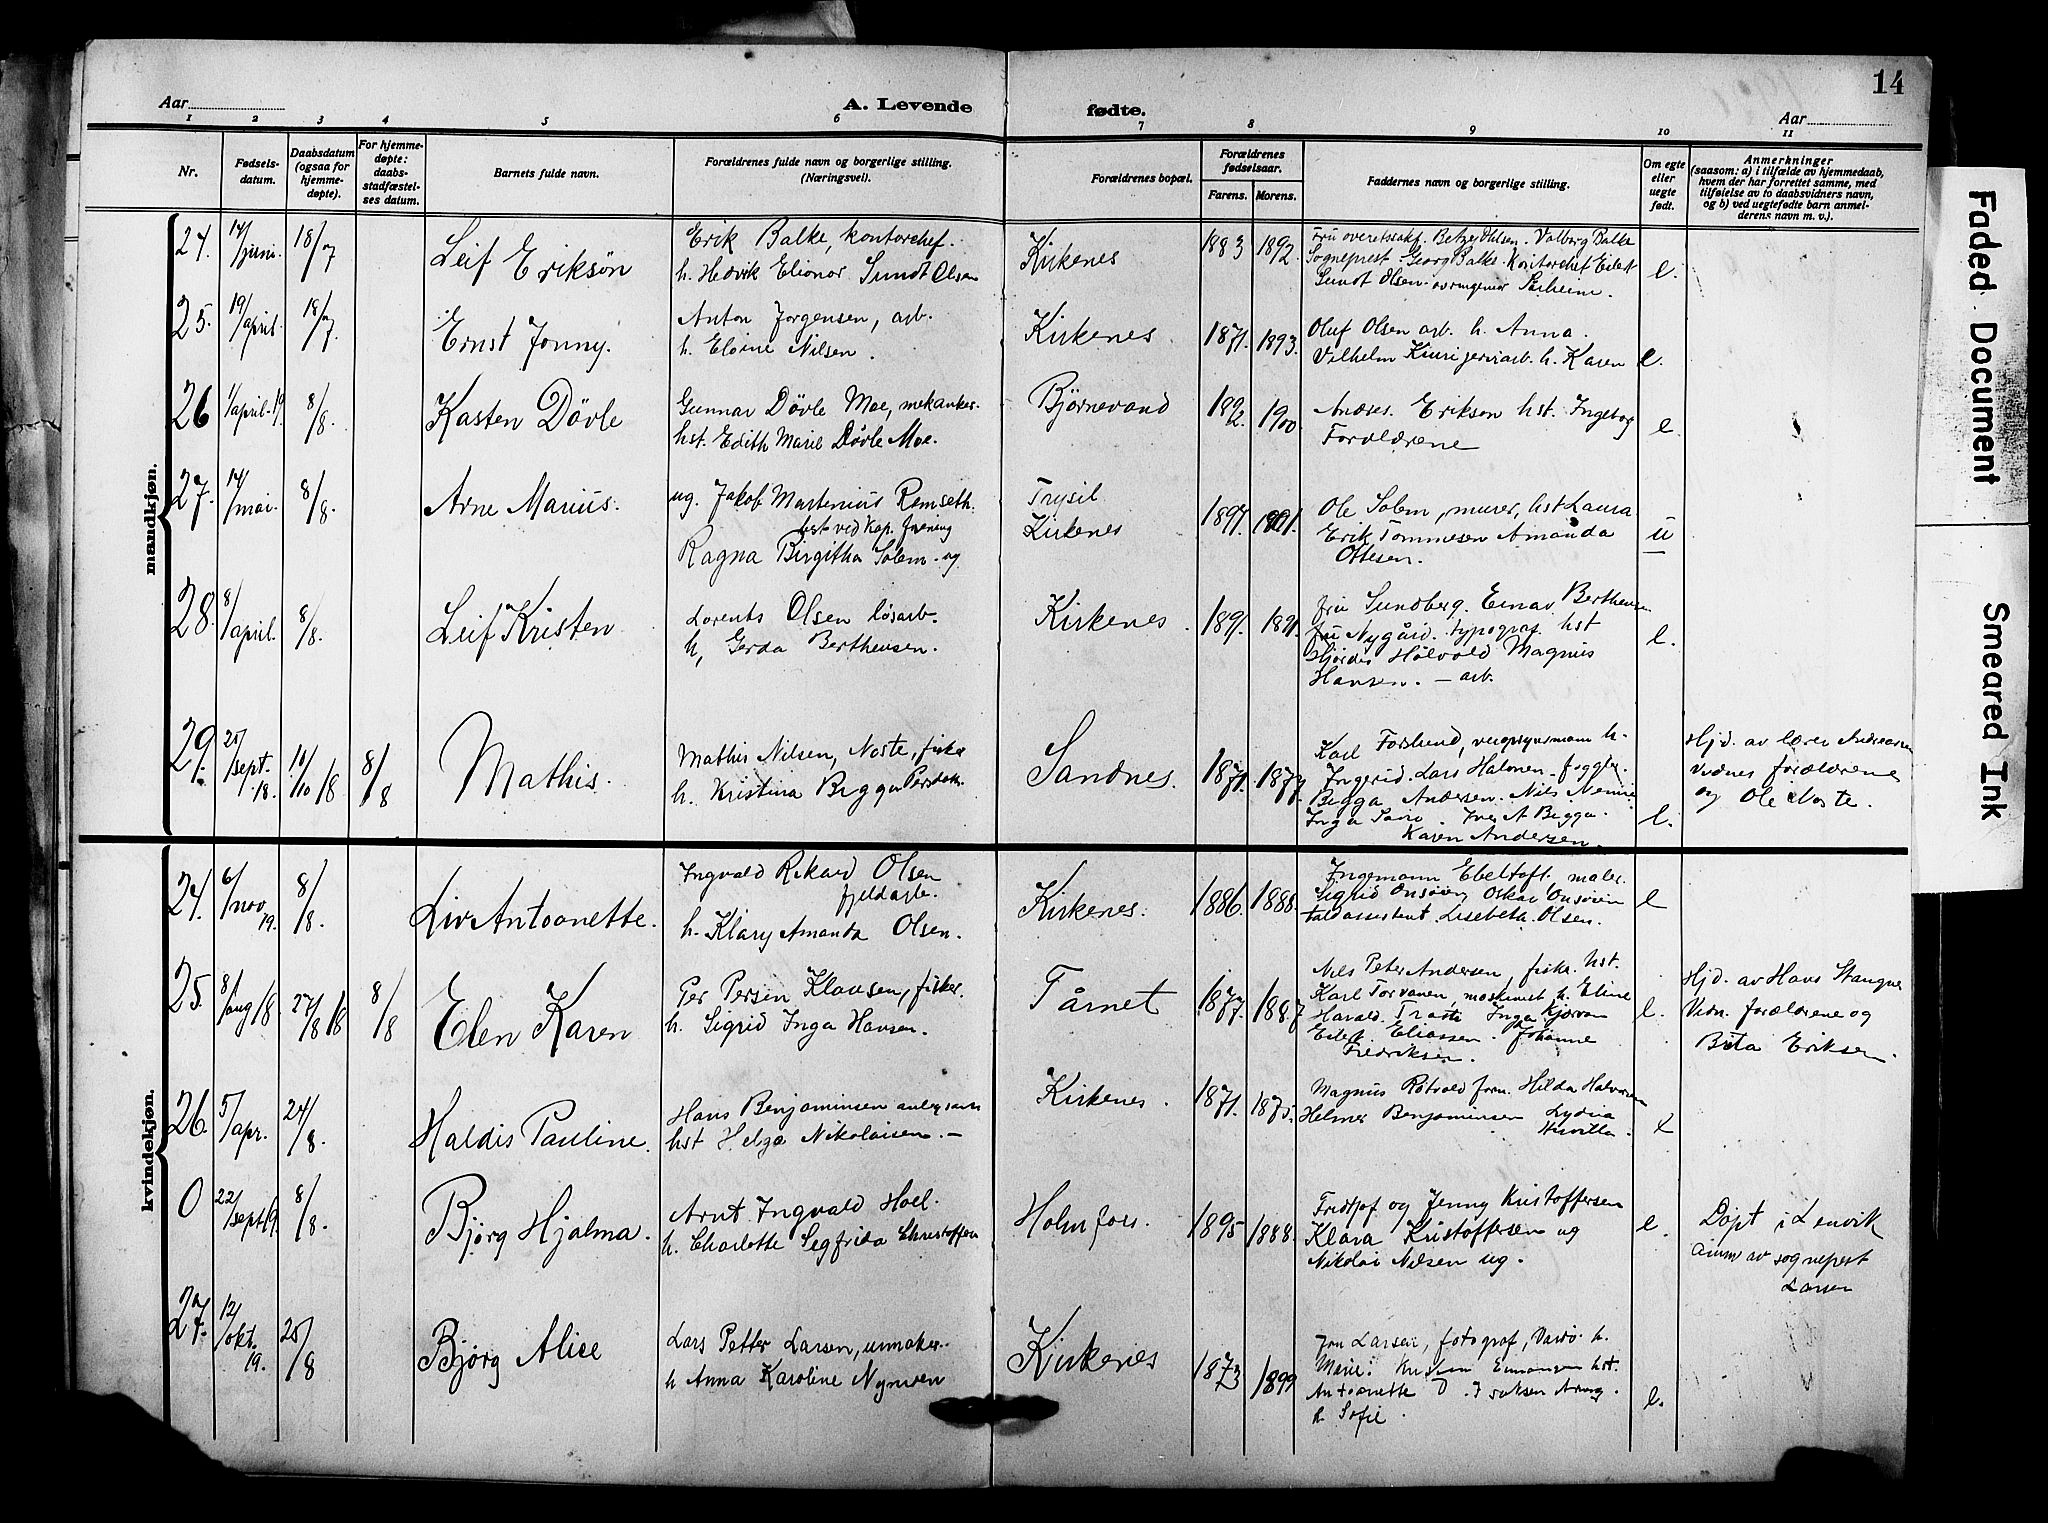 14
Aar
A. Levende
fødte.
Aar
1 2 3 4 5 6 7 8 9 10 11
Nr.
Fødsels-
datum.
Daabsdatum
(ogsaa for
hjemme-
døpte).
For hjemme-
døpte:
daabs-
stadfæstel-
ses datum.
Barnets fulde navn.
Forældrenes fulde navn og borgerlige stilling.
(Næringsvei).
Forældrenes bopæl.
Forældrenes
fødselsaar.
Farens. Morens.
Faddernes navn og borgerlige stilling.
Om egte
eller
uegte
født.
Anmerkninger
(saasom: a) i tilfælde av hjemmedaab,
hvem der har forrettet samme, med
tilføielse av to daabsvidners navn,
og b) ved uegtefødte barn anmel-
derens navn m. v.).
mandkjøn.
24. 14/juni. 18/7 Leif Eriksøn
Erik Balke, kontorchef.
h. Hedvik Elionor Sundt Olsen
Kirkenes 1883 1892.
Fru overetssakf. Betzy Ohlsen. Valborg Balke
Sogneprest Georg Balke. Kontorchef Eilert
Sundt Olsen
e.
25. 19/april. 18/7. Ernst Jonny.
Anton Jørgensen, arb.
h. Eloine Nilsen.
Kirkenes. 1871. 1893.
Oluf Olsen arb. h. Anna.
Vilhelm arb. h. Karen
e.
26 1/april-19. 8/8. Kasten Døvle
Gunnar Døvle Moe, mekaniker.
hst. Edith Marie Døvle Moe.
Bjørnevand 1892. 1900.
Andres Erikson hst. Ingeborg
Forældrene
e.
27. 14/mai. 8/8. Arne Marius.
ug. Jakob Martenius Remseth.
best ved Kop. forening
Ragna Birgitha Solem. ug
Trysil
Kirkenes 1897. 1891.
Ole Solem, murer, hst Laura
Erik Tommesen Amanda
Ottesen.
u
28. 8/april. 8/8. Leif Kristen
Lorents Olsen løsarb.
h, Gerda Berthensen.
Kirkenes. 1891. 1891.
fru Sundberg. Einar Berthensen
fru Nygård. typograf hst
Hjørdis Halvold Magnus
Hansen. – arb.
e.
29. 25/sept. 18. 10/10 18 8/8 Mathis.
Mathis Nilsen, Noste, fisker
h. Kristina Bigga Persdtr.
Sandnes. 1871. 1877.
Karl Forslund, h.
Ingerid. Lars Halonen
Bigga Andersen. Nils
Inga Iver A Bigga.
Karen Andersen.
e.
Hjd. av lærer Andreassen
Vidnes forældrene
og Ole Noste.
kvindekjøn.
24. 6/nov 19. 8/8. Liv Antoonette.
Ingvald Rikard Olsen
fjeldarb.
h. Klary Amanda Olsen.
Kirkenes. 1886. 1888.
Ingemann Ebeltoft. maler.
Sigrid Onsøien, Oskar Onsøien
toldassistent. Lisebeth Olsen.
e
25. 8/aug 18. 27/8 18 8/8 Elen Karen
Per Persen Klausen, fisker.
h. Sigrid Inga Hansen.
Tårnet 1877. 1887
Nils Peter Andersen, fisker. hst.
Karl Torvanen, maskinist h. Eline
Harald. Inga
Eilert Eliassen. Johanne
Fredriksen.
e.
Hjd. av Hans Stangnes
Vidn. forældrene og
Brita Eriksen.
26. 5/apr. 24/8. Haldis Pauline.
Hans Benjaminsen anlegsarb
hst Helga Nikolaisen. –
Kirkenes. 1871. 1875.
Magnus Røtvold frm. Hilda Halvorsen
Helmer Benjaminsen Lydia
e
0 22/sept 19. 8/8. Bjørg Hjalma.
Arnt Ingvald Hoel.
h. Charlotte Segfrida Christoffersen
Holmfoss. 1895 1888.
Fridtjof og Jenny Kristoffersen
Klara Kristoffersen ug
Nikolai Nilsen ug.
e.
Døpt i Lenvik
anm av sogneprest
Larsen
27. 12/okt. 19. 25/8 Bjørg Alice
Lars Petter Larsen, urmaker.
h Anna Karoline Nymoen
Kirkenes 1873 1899
Jon Larsen, fotograf, Vardø. h.
Marie: Kristen hst.
Antoanette Isaksen
h. Sofie.
e.
Faded Document
Smeared Ink